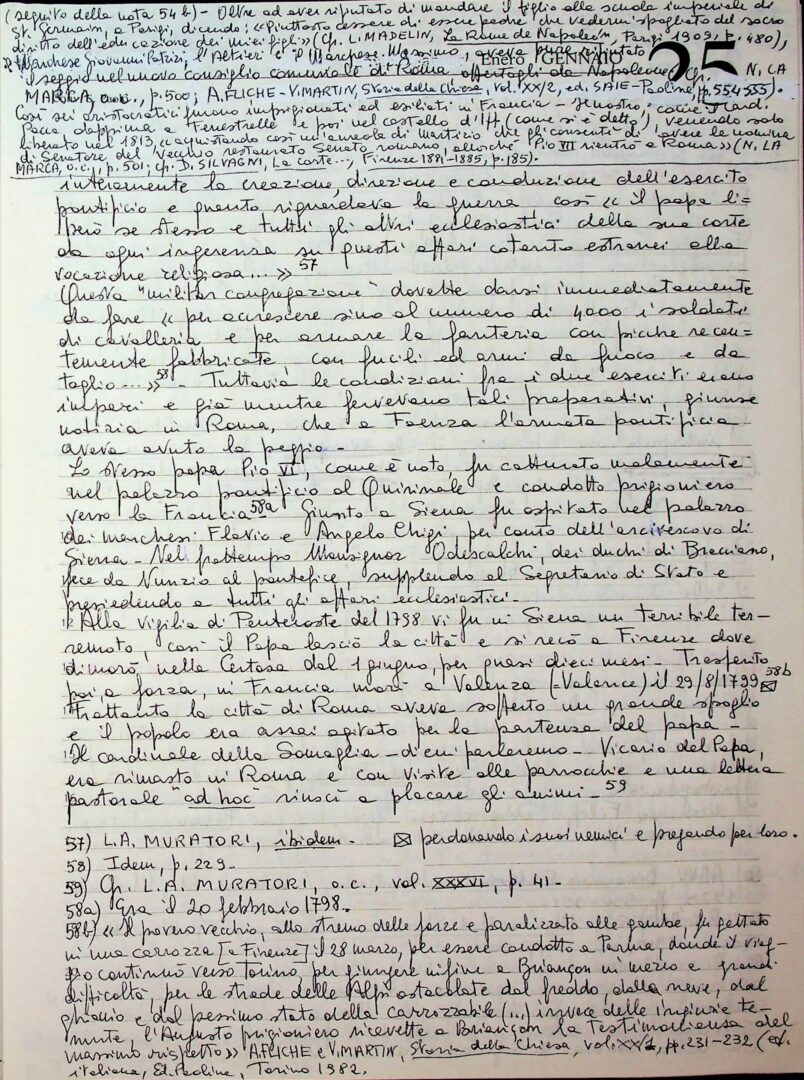 (seguito della nota 54 b) - Oltre ad aver rifiutato di mandare il figlio alla scuola imperiale di
St. Germain, a Parigi, dicendo: «Piuttosto cessare di essere padre che vedermi spogliato del sacro
diritto dell'educazione dei miei figli» (Cfr. L. MADELIN, La Rome de Napoleón, Parigi 1909, p. 480),
Marchese Giovanni Patrizi, l'Altieri e il Marchese Massimo, aveva pure rifiutato
Enero / GENNAIO 25
il seggio nel nuovo consiglio comunale di Roma offertogli da Napoleone (Cfr. N. LA
MARCA, o.c., p. 500; A. FLICHE - V. MARTIN, Storia della Chiesa, vol. XX/2, ed. SAIE-Paoline, pp. 554-555).
Così sei aristocratici furono imprigionati ed esiliati in Francia - Il nostro, come il Card.
Pacca dapprima a Fenestrelle e poi nel castello d'If (come si è detto), venendo solo
liberato nel 1813, «acquistando così un'aureola di martirio che gli consentì di avere la nomina
di Senatore del vecchio restaurato Senato romano, allorché Pio VII rientrò a Roma» (N. LA
MARCA, o.c., p. 501; cfr. D. SILVAGNI, La corte..., Firenze 1881-1885, p. 185).
interamente la creazione, direzione e conduzione dell'esercito
pontificio e quanto riguardava la guerra così « il papa li=
però se stesso e tutti gli altri ecclesiastici della sua corte
da ogni ingerenza su questi affari cotanto estranei alla
vocazione religiosa.... » 57
Questa "militar congregazione" dovette darsi immediatamente
da fare « per accrescere sino al numero di 4000 i soldati
di cavalleria e per armare la fanteria con picche recen-
temente fabbricate, con fucili ed armi da fuoco e da
taglio.... » 58 - Tuttavia le condizioni fra i due eserciti erano
impari e già mentre fervevano tali preparativi, giunse
notizia in Roma, che a Faenza l'armata pontificia
aveva avuto la peggio -
Lo stesso papa Pio VI, come è noto, fu catturato malamente
nel palazzo pontificio al Quirinale e condotto prigioniero
verso la Francia 58a Giunto a Siena fu ospitato nel palazzo
dei marchesi Flavio e Angelo Chigi, per conto dell'arcivescovo di
Siena - Nel frattempo Monsignor Odescalchi, dei duchi di Bracciano,
fece da Nunzio al pontefice, supplendo al Segretario di Stato e
presiedendo a tutti gli affari ecclesiastici -
Alla vigilia di Pentecoste del 1798 vi fu in Siena un terribile ter-
remoto, così il Papa lasciò la città e si recò a Firenze dove
dimorò nella Certosa dal 1 giugno, per quasi dieci mesi - Trasferito
poi a forza, in Francia morì a Valenza (=Valence) il 29/8/1799 58b ☒
Frattanto la città di Roma aveva sofferto un grande spoglio
e il popolo era assai agitato per la partenza del papa -
Il cardinale della Somaglia - di cui parleremo - Vicario del Papa,
era rimasto in Roma e con visite alle parrocchie e una lettera
pastorale "ad hoc" riuscì a placare gli animi - 59
57) L.A. MURATORI, ibidem - ☒ perdonando i suoi nemici e pregando per loro.
58) Idem, p. 229 -
59) Cfr. L.A. MURATORI, o.c., vol. XXXVI, p. 41 -
58a) Era il 20 febbraio 1798 -
58b) « Il povero vecchio, allo stremo delle forze e paralizzato alle gambe, fu gettato
in una carrozza [a Firenze] il 28 marzo, per essere condotto a Parma, donde il viag-
gio continuò verso Torino, per giungere infine a Briançon in mezzo e grandi
difficoltà, per le strade delle Alpi ostacolate dal freddo, dalla neve, dal
ghiaccio e dal pessimo stato della carrozzabile (...) invece delle ingiurie te-
mute, l'Augusto prigioniero ricevette a Briançon la testimonianza del
massimo rispetto » A. FLICHE e V. MARTIN, Storia della Chiesa, vol. XX/1, pp. 231-232 (ed.
italiana, Ed. Paoline, Torino 1982.